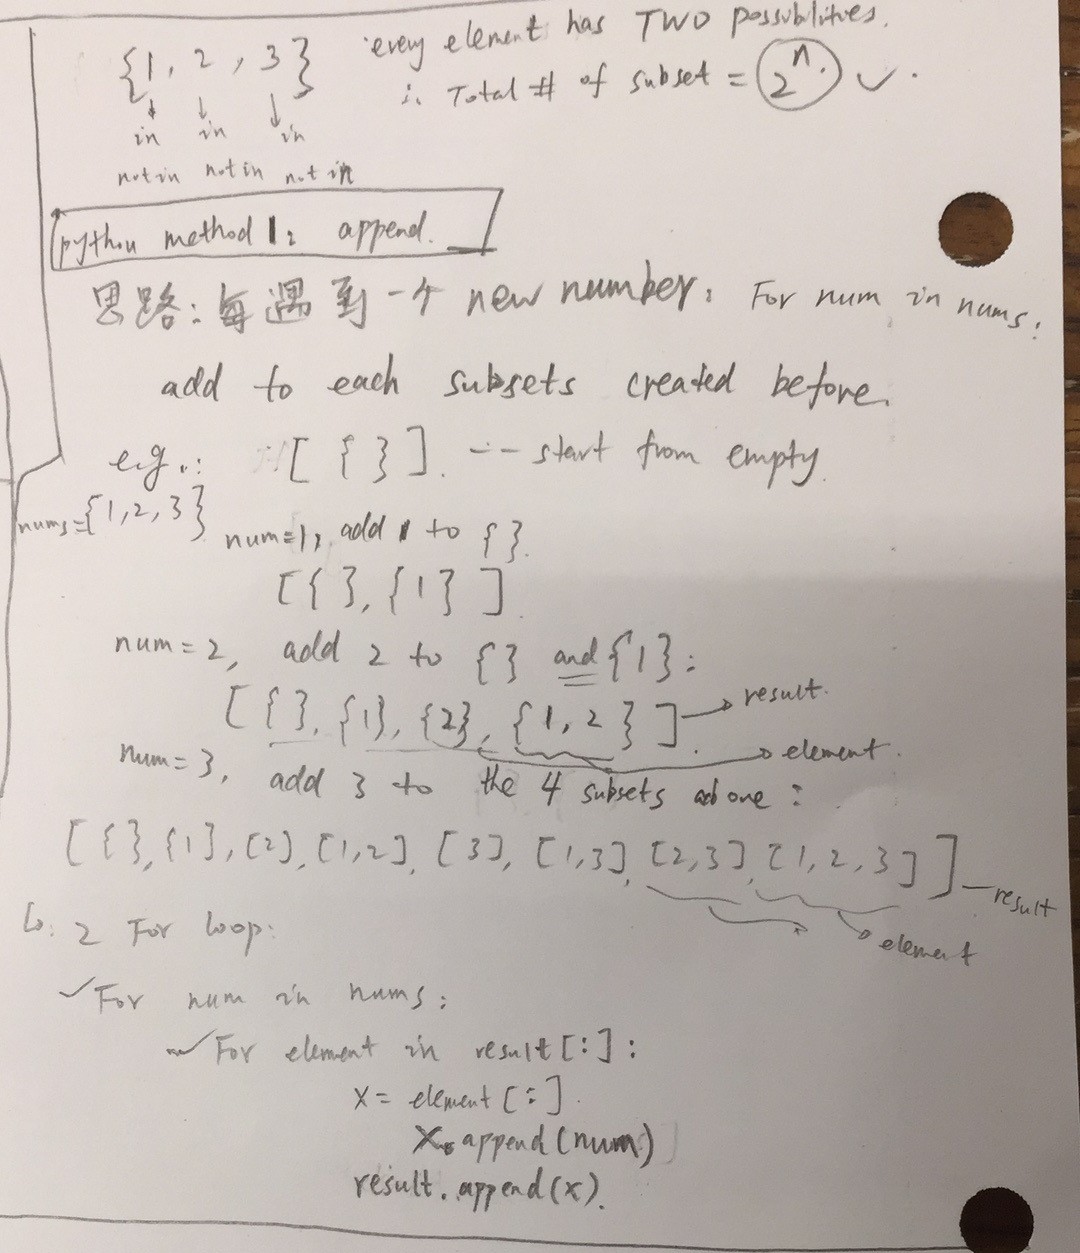 {1, 2, 3} every element has TWO possibilities.
∴ Total # of subset = 2^n. ✓.
in in in
not in not in not in
python method 1: append.
思路: 每遇到一个 new number, For num in nums:
add to each subsets created before.
e.g.: [ { } ]. -- start from empty
nums={1,2,3}
num=1, add 1 to { }.
[{ }, {1} ]
num = 2, add 2 to { } and {1}:
[ { }, {1}, {2}, {1, 2 } ] → result.
→ element.
num = 3, add 3 to the 4 subsets above :
[ { }, {1], [2], [1,2], [3], [1,3], [2,3], [1,2,3] ] — result
→ element
2 For loop:
✓ For num in nums:
✓ For element in result[:]:
x = element[:].
x.append(num)
result.append(x).